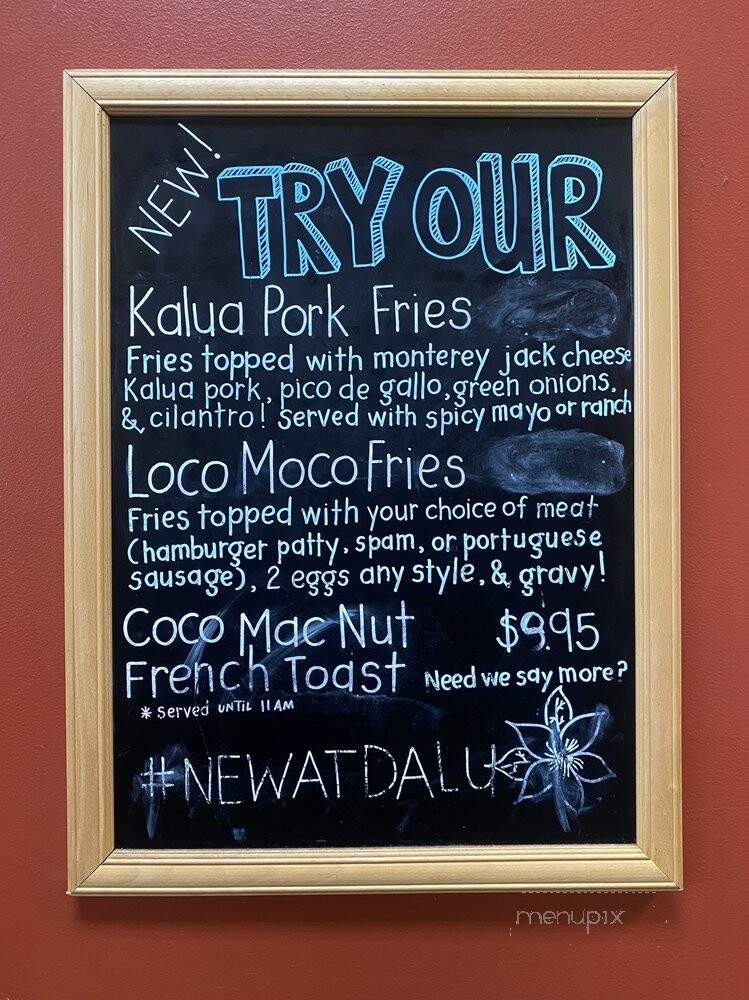 NEW!
TRY OUR
Kalua Pork Fries
Fries topped with monterey jack cheese
Kalua pork, pico de gallo, green onions.
& cilantro! Served with spicy mayo or ranch
Loco Moco Fries
Fries topped with your choice of meat
(hamburger patty, spam, or portuguese
sausage), 2 eggs any style, & gravy!
Coco Mac Nut $9.95
French Toast Need we say more?
* Served UNTIL 11AM
#NEWATDALU
menupix